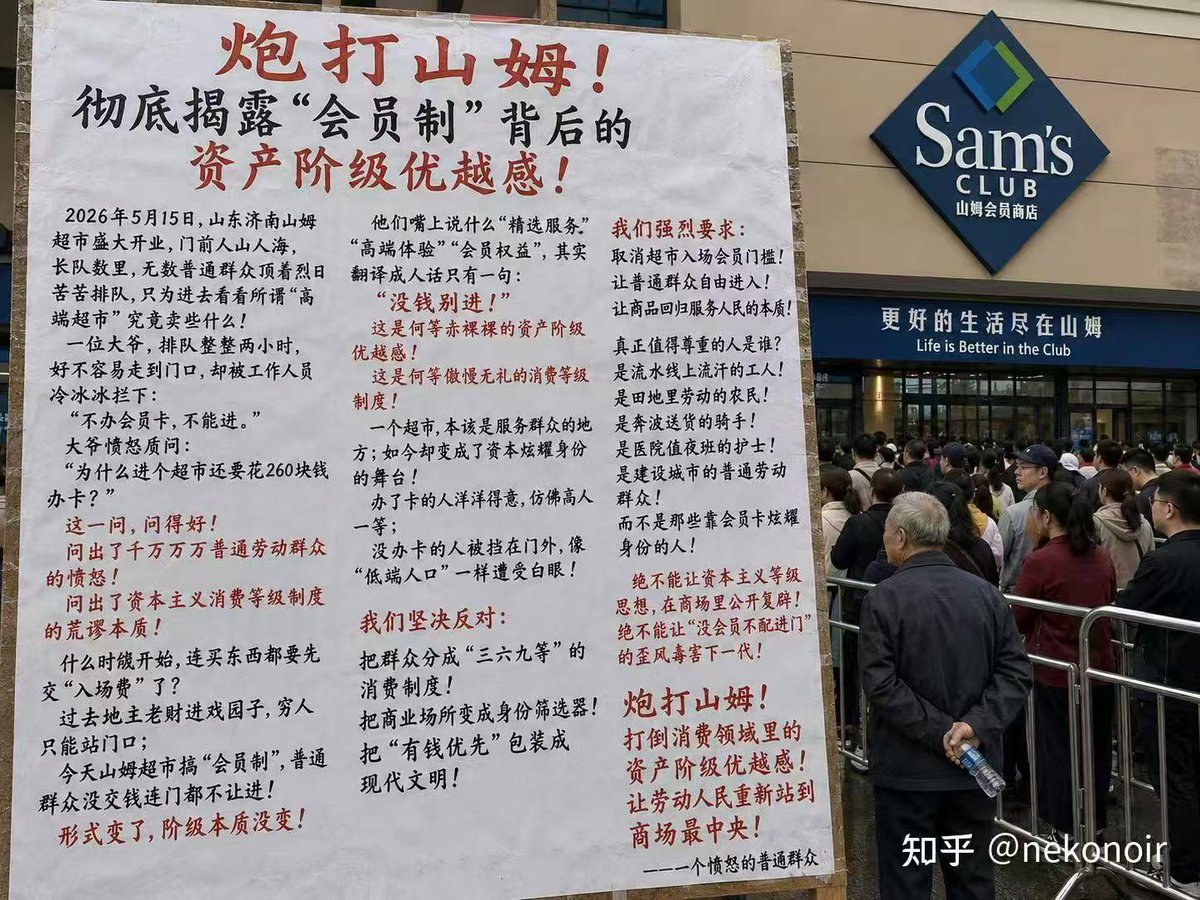 炮打山姆！
彻底揭露“会员制”背后的
资产阶级优越感！
2026年5月15日，山东济南山姆
超市盛大开业，门前人山人海，
长队数里，无数普通群众顶着烈日
苦苦排队，只为进去看看所谓“高
端超市”究竟卖些什么！
一位大爷，排队整整两小时，
好不容易走到门口，却被工作人员
冷冰冰拦下：
“不办会员卡，不能进。”
大爷愤怒质问：
“为什么进个超市还要花260块钱
办卡？”
这一问，问得好！
问出了千万万万普通劳动群众
的愤怒！
问出了资本主义消费等级制度
的荒谬本质！
什么时候开始，连买东西都要先
交“入场费”了？
过去地主老财进戏园子，穷人
只能站门口；
今天山姆超市搞“会员制”，普通
群众没交钱连门都不让进！
形式变了，阶级本质没变！
他们嘴上说什么“精选服务”
“高端体验”“会员权益”，其实
翻译成人话只有一句：
“没钱别进！”
这是何等赤裸裸的资产阶级
优越感！
这是何等傲慢无礼的消费等级
制度！
一个超市，本该是服务群众的地
方；如今却变成了资本炫耀身份
的舞台！
办了卡的人洋洋得意，仿佛高人
一等；
没办卡的人被挡在门外，像
“低端人口”一样遭受白眼！
我们坚决反对：
把群众分成“三六九等”的
消费制度！
把商业场所变成身份筛选器！
把“有钱优先”包装成
现代文明！
我们强烈要求：
取消超市入场会员门槛！
让普通群众自由进入！
让商品回归服务人民的本质！
真正值得尊重的人是谁？
是流水线上流汗的工人！
是田地里劳动的农民！
是奔波送货的骑手！
是医院值夜班的护士！
是建设城市的普通劳动
群众！
而不是那些靠会员卡炫耀
身份的人！
绝不能让资本主义等级
思想，在商场里公开复辟！
绝不能让“没会员不配进门”
的歪风毒害下一代！
炮打山姆！
打倒消费领域里的
资产阶级优越感！
让劳动人民重新站到
商场最中央！
———一个愤怒的普通群众
Sam's
CLUB
山姆会员商店
更好的生活尽在山姆
Life is Better in the Club
知乎 @nekonoir